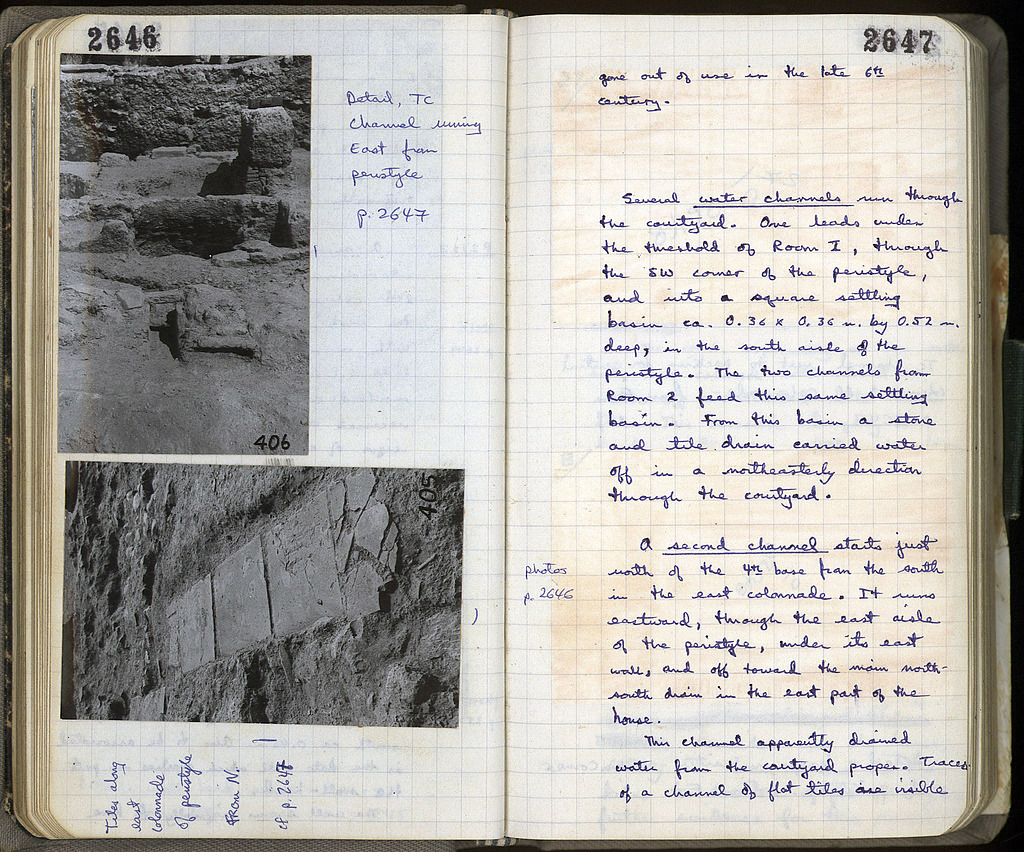 2646
Detail, TC
Channel running
East from
peristyle
p. 2647
406
405
Tiles along
east
colonnade
of peristyle
FROM N.
cf p. 2647
2647
gone out of use in the late 6th
century.
Several water channels run through
the courtyard. One leads under
the threshold of Room I, through
the SW corner of the peristyle,
and into a square settling
basin ca. 0.36 x 0.36 m. by 0.52 m.
deep, in the south aisle of the
peristyle. The two channels from
Room 2 feed this same settling
basin. From this basin a stone
and tile drain carried water
off in a northeasterly direction
through the courtyard.
A second channel starts just
photos
north of the 4th base from the south
p. 2646
in the east colonnade. It runs
eastward, through the east aisle
of the peristyle, under its east
wall, and off toward the main north-
south drain in the east part of the
house.
This channel apparently drained
water from the courtyard proper. Traces
of a channel of flat tiles are visible